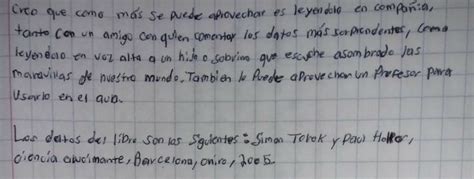 Creo que como más se puede aprovechar es leyendolo en compañia,
tanto con un amigo con quien comentar los datos más sorprendentes, como
leyendolo en voz alta a un hijo o sobrino que escuche asombrado las
maravillas de nuestro mundo. Tambien lo Puede aprovechar un Profesor para
Usarlo en el aula.
Los datos del libro son los Siguientes: Simon Torok y Paul Holper,
Ciencia alucinante, Barcelona, oniro, 2005.